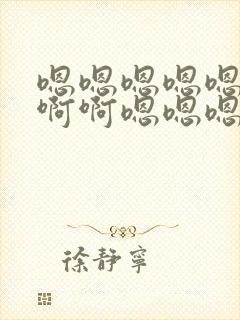 嗯嗯嗯嗯嗯
啊啊嗯嗯嗯
徐静宁